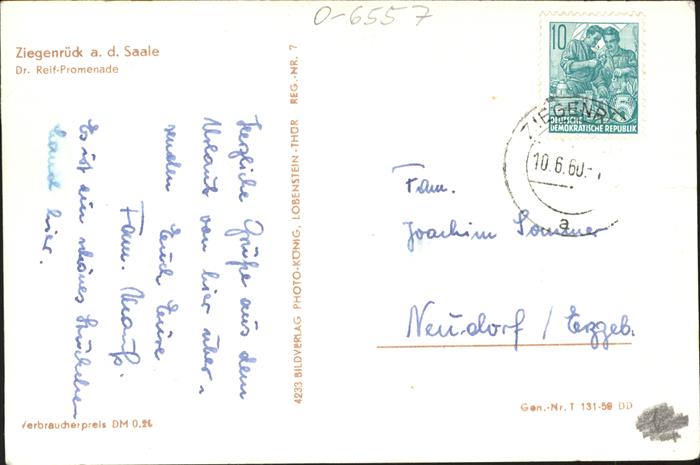 O-6557
Ziegenrück a. d. Saale
Dr. Reif-Promenade
Herzliche Grüße aus dem
Urlaub von hier über-
senden Euch Eure
Fam.
Es ist ein schönes Stückchen
Land hier.
Verbraucherpreis DM 0.26
4233 BILDVERLAG PHOTO-KÖNIG, LOBENSTEIN-THÜR REG.-NR. 7
10
5
DEUTSCHE
DEMOKRATISCHE REPUBLIK
ZIEGENR
10.6.60.-
a
Fam.
Joachim Sommer
Neudorf / Erzgeb.
Gen.-Nr. T 131-59 DD